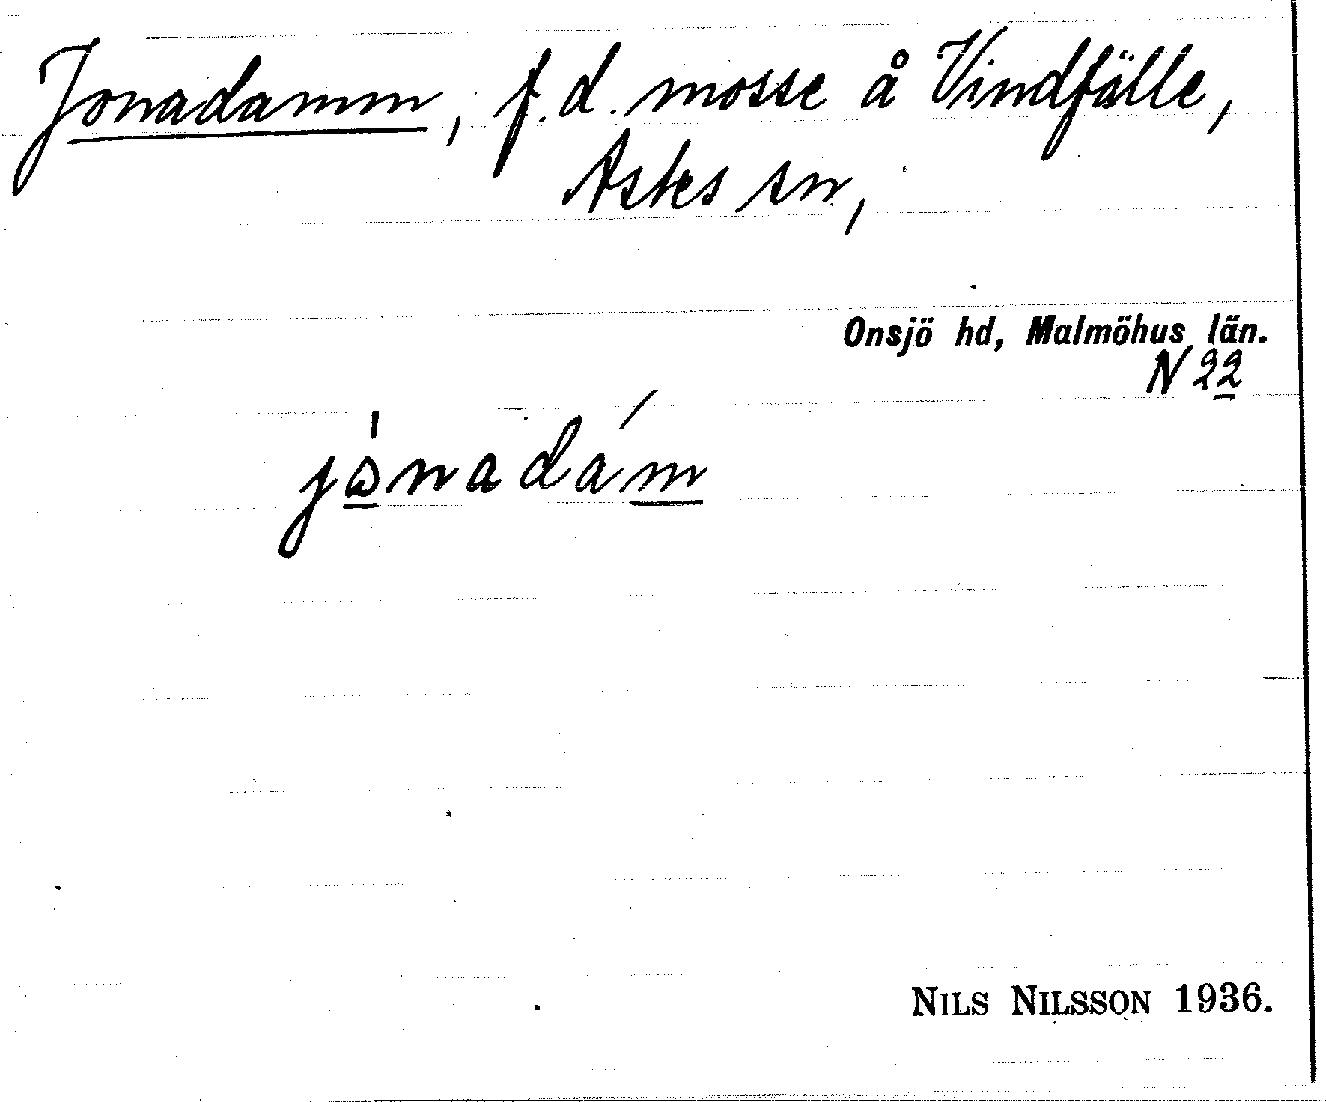 Jonadamm, f.d. mosse å Vindfälle,
Asks sn,
Onsjö hd, Malmöhus län.
N 22
jònadám
NILS NILSSON 1936.